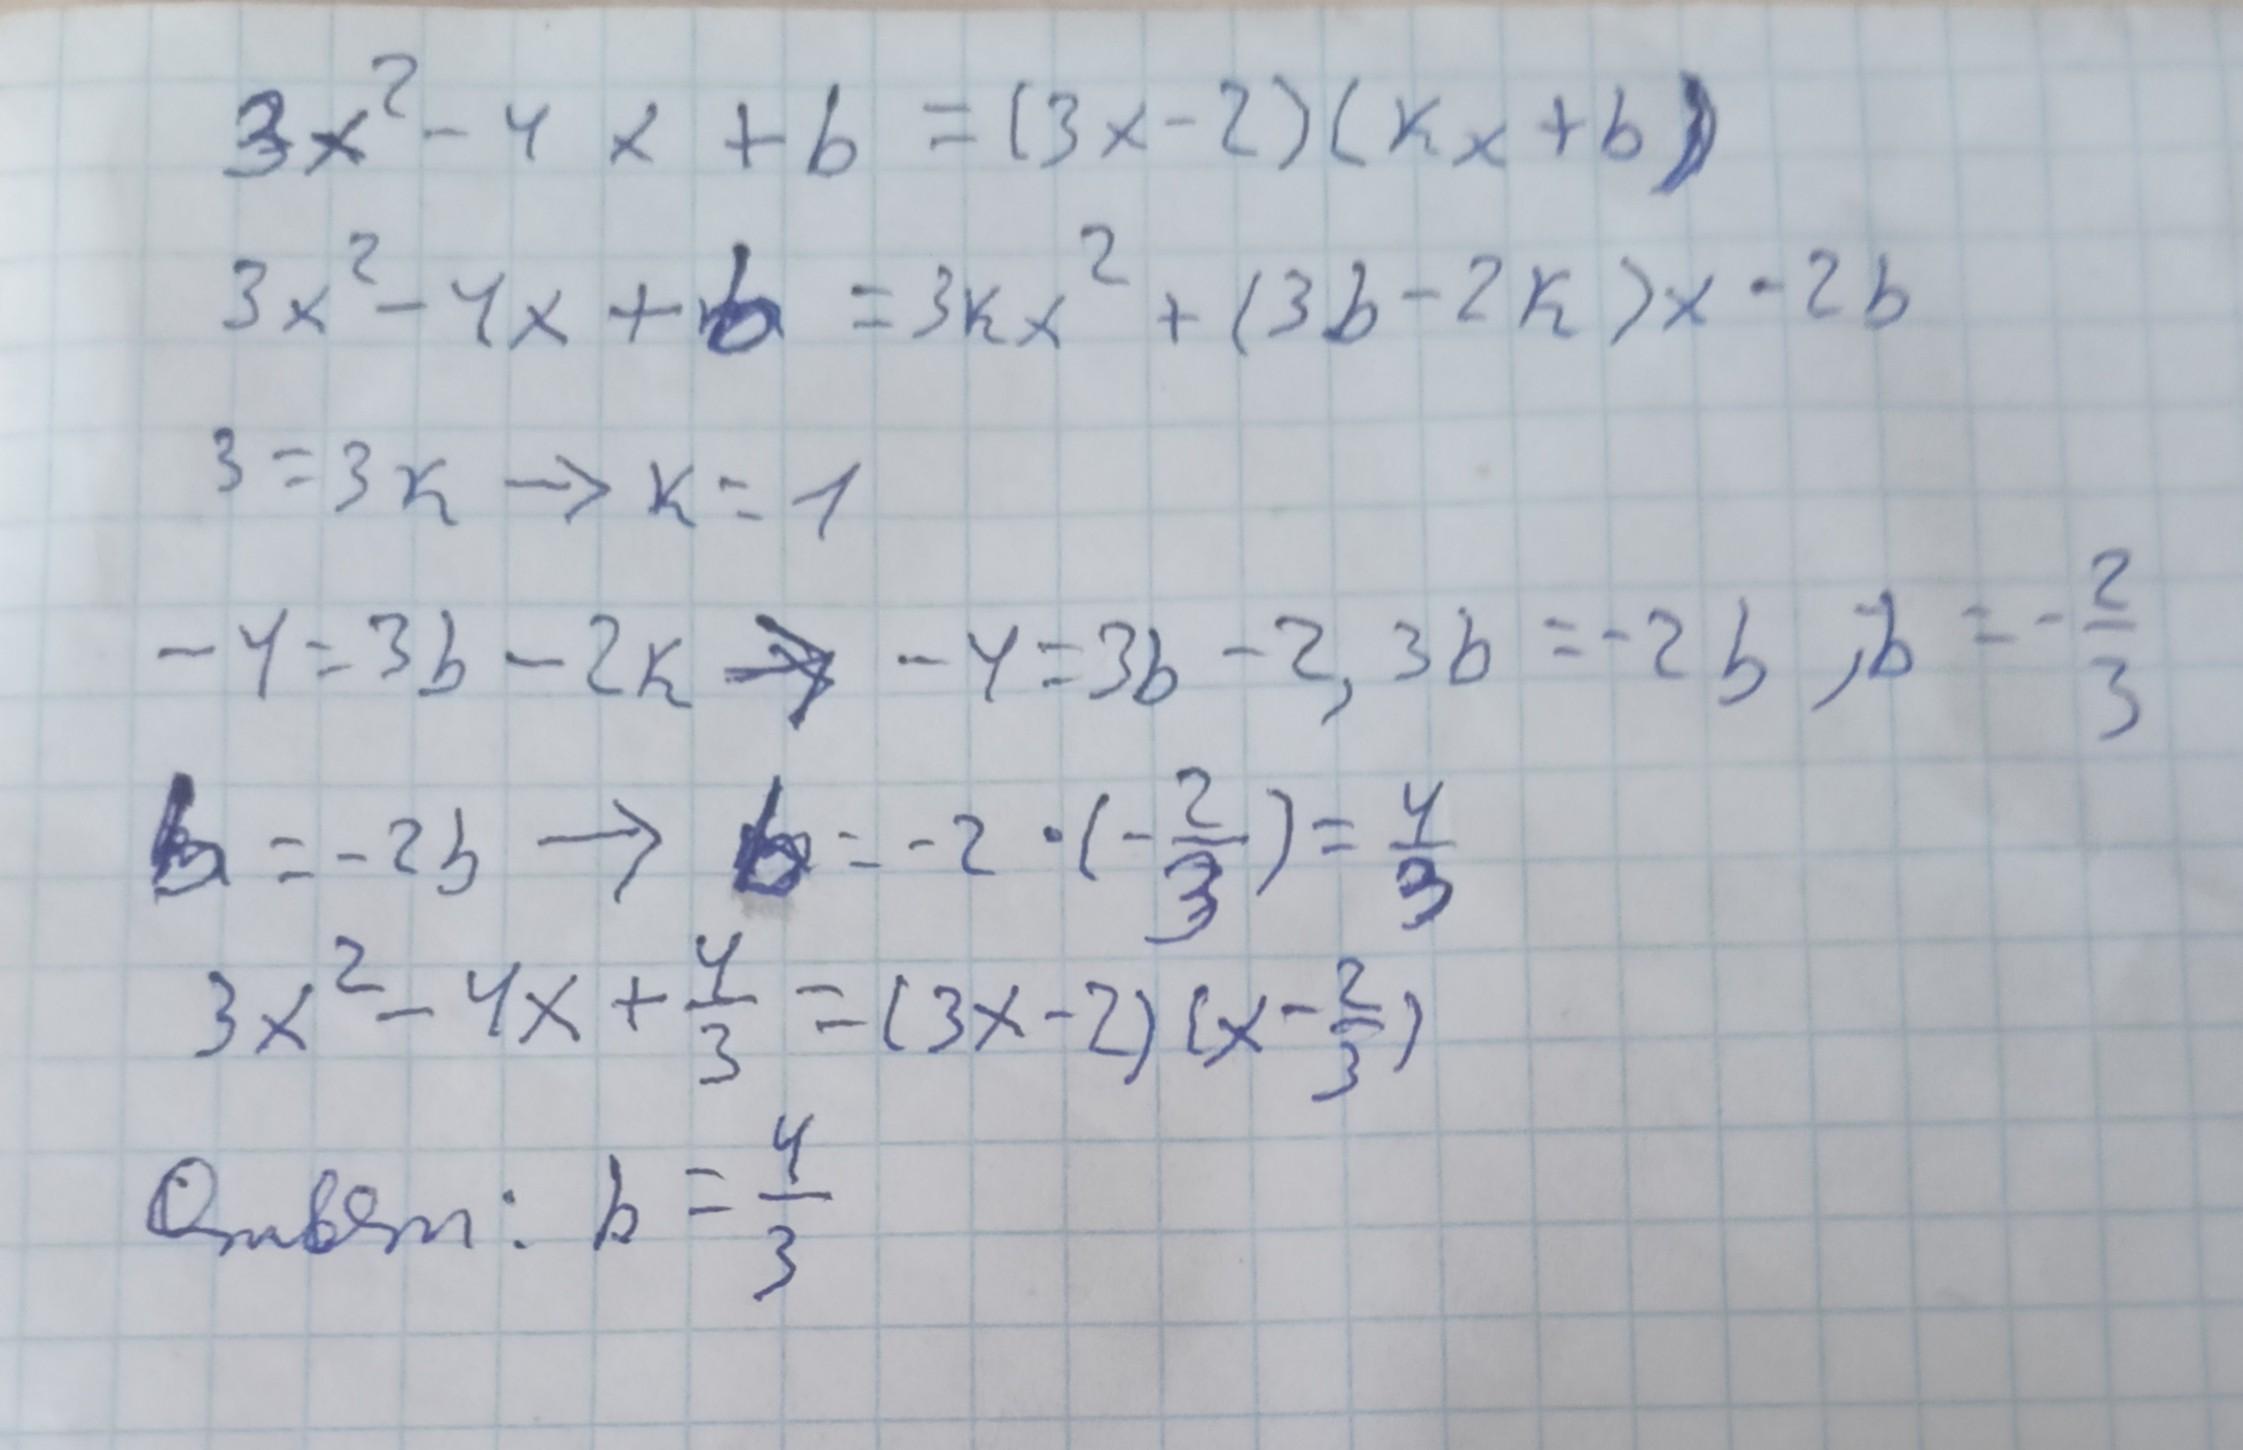 3x² - 4x + b = (3x - 2)(kx + b)
3x² - 4x + b = 3kx² + (3b - 2k)x - 2b
3 = 3k → k = 1
-4 = 3b - 2k → -4 = 3b - 2, 3b = -2b, b = -2/3
b = -2b → b = -2 · (-2/3) = 4/3
3x² - 4x + 4/3 = (3x - 2)(x - 2/3)
Ответ: b = 4/3